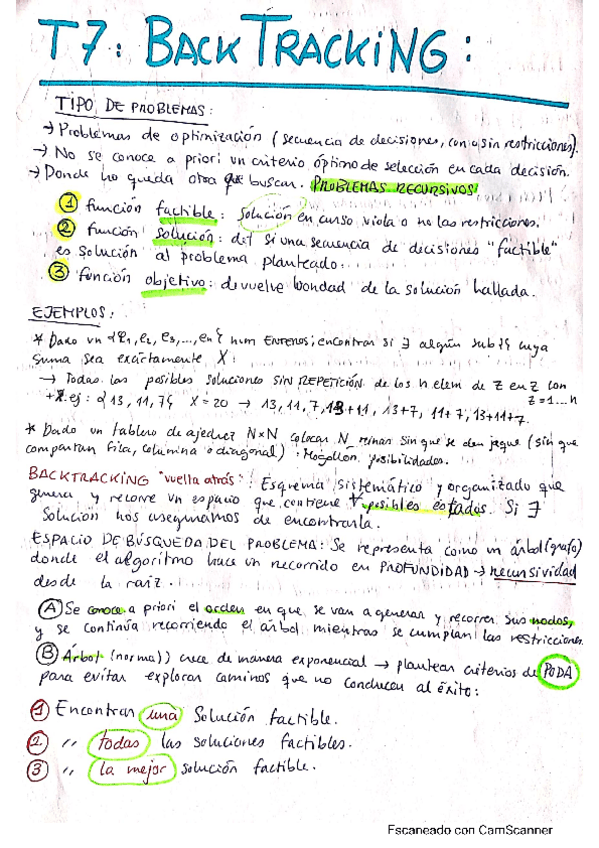 T7: BACKTRACKING:
TIPO DE PROBLEMAS:
→ Problemas de optimización (secuencia de decisiones, con o sin restricciones).
→ No se conoce a priori un criterio óptimo de selección en cada decisión.
→ Donde no queda otra que buscar. PROBLEMAS RECURSIVOS
① función factible: solución en curso viola o no las restricciones.
② función solución: det si una secuencia de decisiones "factible"
es solución al problema planteado.
③ función objetivo: devuelve bondad de la solución hallada.
EJEMPLOS:
* Dado un {e1, e2, e3, ..., en} num ENTEROS; encontrar si ∃ algún sub{} cuya
suma sea exactamente X:
→ Todas las posibles soluciones SIN REPETICIÓN de los n elem de z en z con
z=1...n
+x. ej: {13, 11, 7} X=20 → 13, 11, 7, 13+11, 13+7, 11+7, 13+11+7
* Dado un tablero de ajedrez N×N colocar N reinas sin que se den jaque (sin que
compartan fila, columna o diagonal): Mogollón posibilidades.
BACKTRACKING "vuelta atrás": Esquema sistemático y organizado que
genera y recorre un espacio que contiene ∀ posibles estados. Si ∃
solución nos aseguramos de encontrarla.
ESPACIO DE BÚSQUEDA DEL PROBLEMA: Se representa como un árbol (grafo)
donde el algoritmo hace un recorrido en PROFUNDIDAD → recursividad
desde la raíz.
Ⓐ Se conoce a priori el orden en que se van a generar y recorrer sus nodos,
y se continúa recorriendo el árbol mientras se cumplan las restricciones.
Ⓑ Árbol (normal) crece de manera exponencial → plantear criterios de PODA
para evitar explorar caminos que no conducen al éxito:
① Encontrar una solución factible.
② " todas las soluciones factibles.
③ " la mejor solución factible.
Escaneado con CamScanner